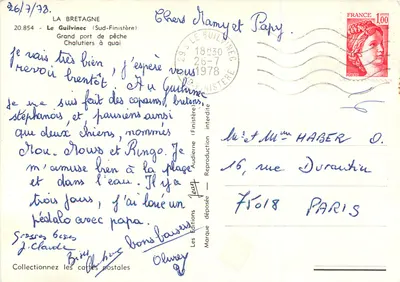 26/7/78.
LA BRETAGNE
20.854 - Le Guilvinec (Sud-Finistère)
Grand port de pêche
Chalutiers à quai
Chers Mamy et Papy.
Je vais très bien, j'espère vous
revoir bientôt. Au Guilvinec
je me suis fait des copains,
stéphanos, et, parisiens aussi
que deux chiens, nommés
Mou-Mous et Ringo. Je
m'amuse bien à la plage
et dans l'eau. Il y a
trois jours, j'ai loué un
pédalo avec papa.
Grosses bises
J. Claude
Bises
bons baisers
Olivier
Collectionnez les cartes postales
Les Editions Jean Audierne (Finistère)
Marque déposée - Reproduction interdite
29 LE GUILVINEC
18H30
26-7
1978
FINISTERE
1,00
Mr et Mme HABER O.
16, rue Durantin
75018 PARIS